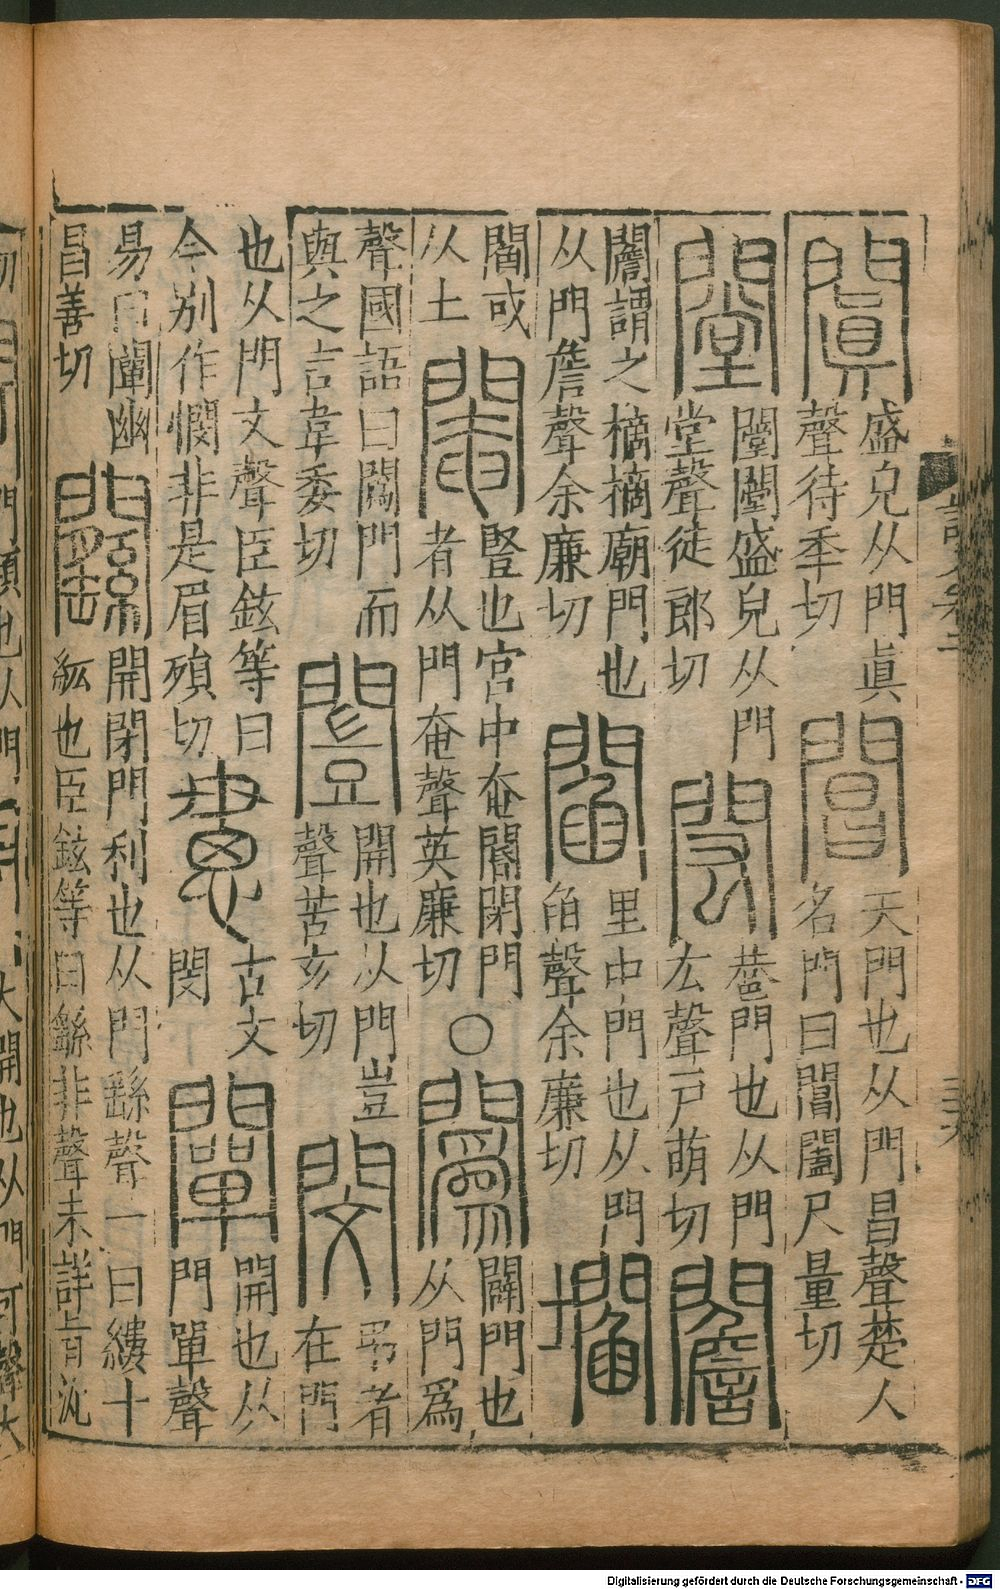 闐
盛皃从門眞
聲待秊切
閶
天門也从門昌聲楚人
名門曰閶闔尺量切
闛
闛闛盛皃从門
堂聲徒郎切
閎
巷門也从門
厷聲戸萌切
䦲
䦲謂之樀樀廟門也
从門詹聲余廉切
閻
里中門也从門
臽聲余廉切
壛
閻或
从土
閹
豎也宮中奄閽閉門
者从門奄聲英廉切
○
䦱
闢門也
从門爲
聲國語曰䦱門而
與之言韋委切
闓
開也从門豈
聲苦亥切
閔
弔者
在門
也从門文聲臣鉉等曰
今别作憫非是眉殞切
古文
閔
闡
開也从
門單聲
易曰闡幽
昌善切
開閉門利也从門繇聲一曰縷十
紘也臣鉉等曰繇非聲未詳旨沇
門傾也从門
大開也从門可聲大
Digitalisierung gefördert durch die Deutsche Forschungsgemeinschaft - DFG